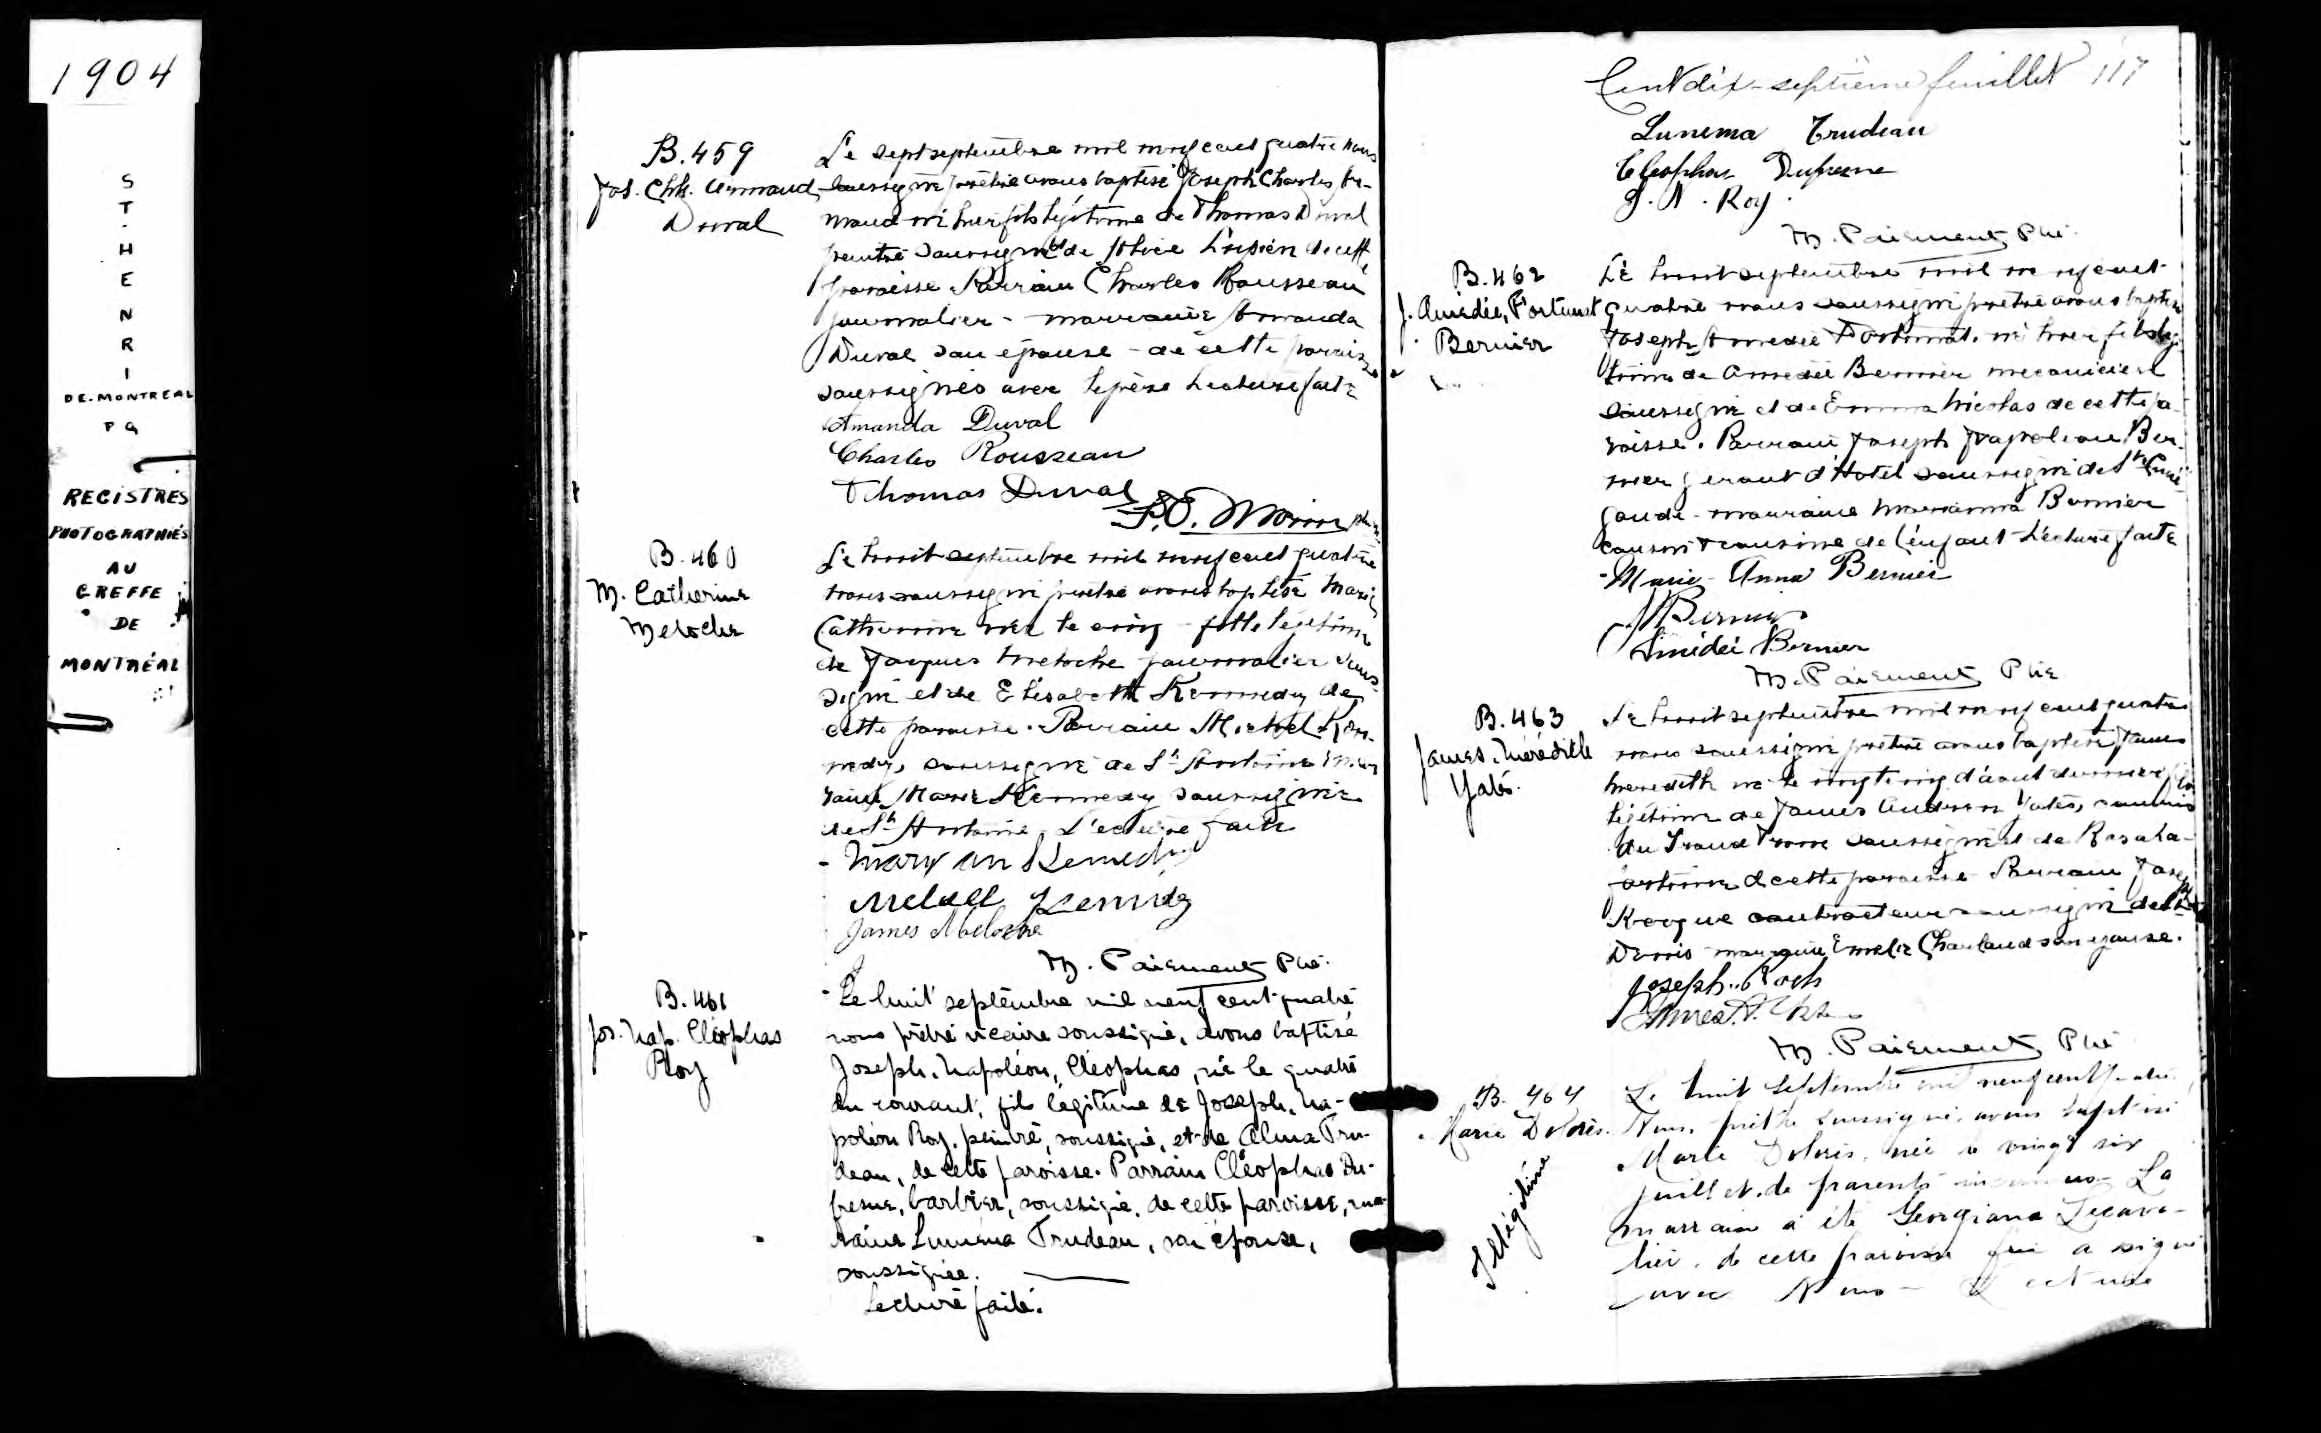 1904
ST. HENRI
DE. MONTREAL
P Q
REGISTRES
PHOTOGRAPHIÉS
AU
GREFFE
DE
MONTRÉAL
B. 459
Jos. Chs. Armand
Duval
Le sept septembre mil neuf cent quatre nous
soussigné prêtre avons baptisé Joseph Charles Ar-
mand né hier fils légitime de Thomas Duval
peintre soussigné et de
paroisse Parrain Charles Rousseau
journalier - marraine Amanda
Duval son épouse - de cette paroisse
soussignés avec le père Lecture faite
Amanda Duval
Charles Rousseau
Thomas Duval
Morin
B. 460
M. Catherine
Meloche
Le huit septembre mil neuf cent quatre
nous soussigné prêtre avons baptisé Marie
Catherine née le cinq fille légitime
de Jacques Meloche journalier sous-
signé et de Elisabeth Kennedy de
cette paroisse. Parrain Michel Ken-
nedy, soussigné de St Antoine mar
raine Marie Kennedy soussignée
de St Antoine. Lecture faite
- Mary an Kennedy
James Meloche
M. Paiement Ptre.
B. 461
Jos. Nap. Cléophas
Roy
Le huit septembre mil neuf cent quatre
nous prêtre vicaire soussigné, avons baptisé
Joseph, Napoléon, Cléophas, né le quatre
du courant, fils légitime de Joseph, Na-
poléon Roy, peintre, soussigné, et de Alma Tru-
deau, de cette paroisse. Parrain Cléophas Du-
fresne, barbier, soussigné, de cette paroisse, mar-
raine Lumena Trudeau, son épouse,
soussignée.
Lecture faite.
Cent dix-septième feuillet 117
Lumena Trudeau
Cleophas Dufresne
J. N. Roy.
M. Paiement Ptre.
B. 462
J. Amédée, Fortunat
Bernier
Le huit septembre mil neuf cent
quatre nous soussigné prêtre avons baptisé
Joseph Amedée Fortunat, né hier fils légi-
time de Amedée Bernier mecanicien
soussigné et de Emma Nicolas de cette pa-
roisse. Parrain Joseph Napoléon Ber-
nier gerant d'Hotel soussigné de Ste Cuné-
gonde - marraine Marianna Bernier
cousin & cousine de l'enfant Lecture faite
- Marie-Anna Bernier
Bernier
Amédée Bernier
M. Paiement Ptre
B. 463
James. Mérédith
Yates.
Le huit septembre mil neuf cent quatre
nous soussigné prêtre avons baptisé James
Meredith né le vingt cinq d'août dernier fils
légitime de James Yates, commis
au Grand Tronc soussigné et de Rosa La-
fortune de cette paroisse Parrain Joseph
contracteur soussigné de St
Denis marraine Emelie Charland son epouse.
Joseph
James A. Yates
M. Paiement Ptre
B. 464
Marie Doloris.
Illégitime
Le huit Septembre mil neuf cent quatre
Nous, prêtre soussigné, avons baptisé
Marie Doloris, née le vingt six
juillet, de parents inconnus - La
marraine a été Georgiana Lecava-
lier, de cette paroisse qui a signé
avec Nous - Lecture